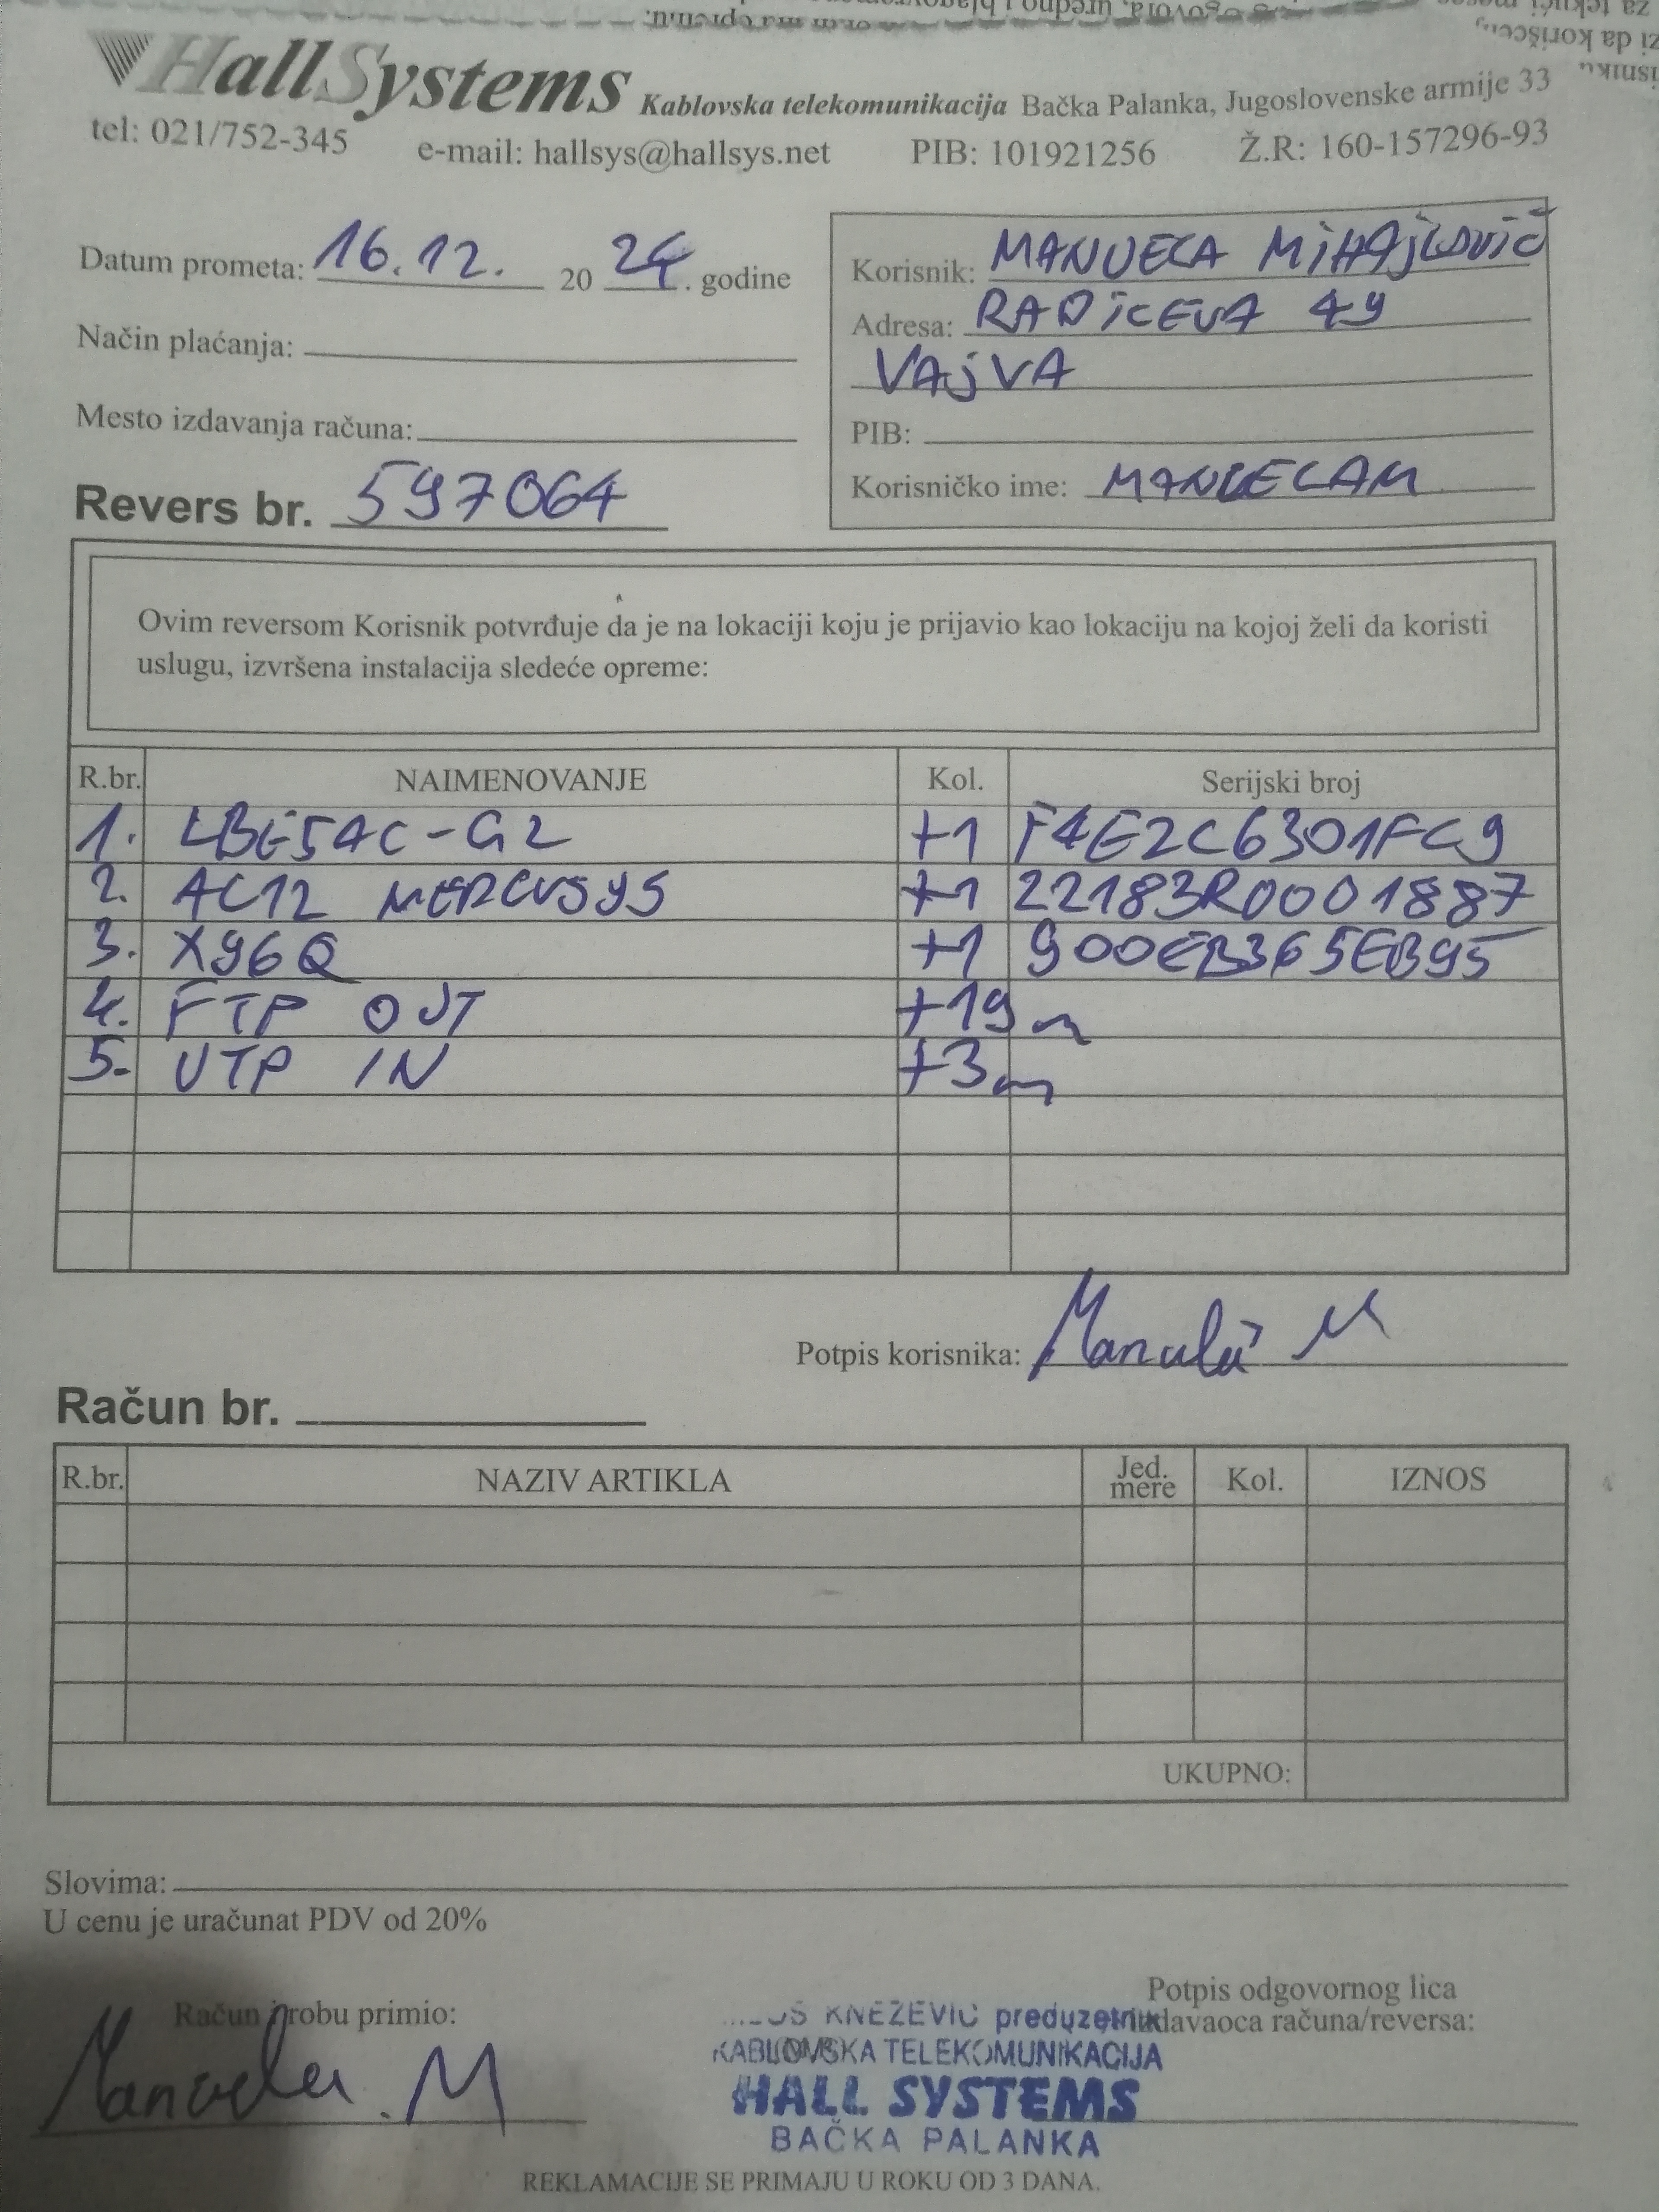 HallSystems Kablovska telekomunikacija Bačka Palanka, Jugoslovenske armije 33
tel: 021/752-345 e-mail: hallsys@hallsys.net PIB: 101921256 Ž.R: 160-157296-93
Datum prometa: 16.12. 2024. godine
Način plaćanja:
Mesto izdavanja računa:
Revers br. 597064
Korisnik: MANUELA MIHAJLOVIĆ
Adresa: RADIČEVA 49
VAJVA
PIB:
Korisničko ime: MANUELAM
Ovim reversom Korisnik potvrđuje da je na lokaciji koju je prijavio kao lokaciju na kojoj želi da koristi
uslugu, izvršena instalacija sledeće opreme:
R.br. NAIMENOVANJE Kol. Serijski broj
1. LBE5AC-G2 +1 F4E2C6301FC9
2. AC12 MERCUSYS +1 22183R0001887
3. X96Q +1 900EB365EB95
4. FTP OUT +19m
5. UTP IN +3m
Potpis korisnika: Manuela M
Račun br.
R.br. NAZIV ARTIKLA Jed. mere Kol. IZNOS
UKUPNO:
Slovima:
U cenu je uračunat PDV od 20%
Račun i robu primio:
Manuela M
KNEŽEVIĆ preduzetnik
KABLOVSKA TELEKOMUNIKACIJA
HALL SYSTEMS
BAČKA PALANKA
Potpis odgovornog lica
izdavaoca računa/reversa:
REKLAMACIJE SE PRIMAJU U ROKU OD 3 DANA.